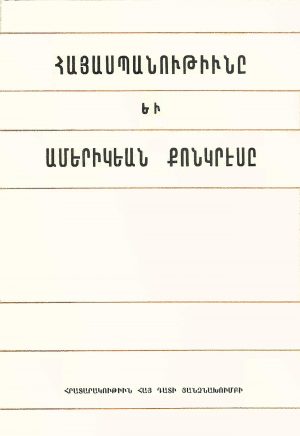 ՀԱՅԱՍՊԱՆՈՒԹԻՒՆԸ
ԵՒ
ԱՄԵՐԻԿԵԱՆ ՔՈՆԿՐԷՍԸ
ՀՐԱՏԱՐԱԿՈՒԹԻՒՆ ՀԱՅ ԴԱՏԻ ՅԱՆՁՆԱԽՈՒՄԲԻ